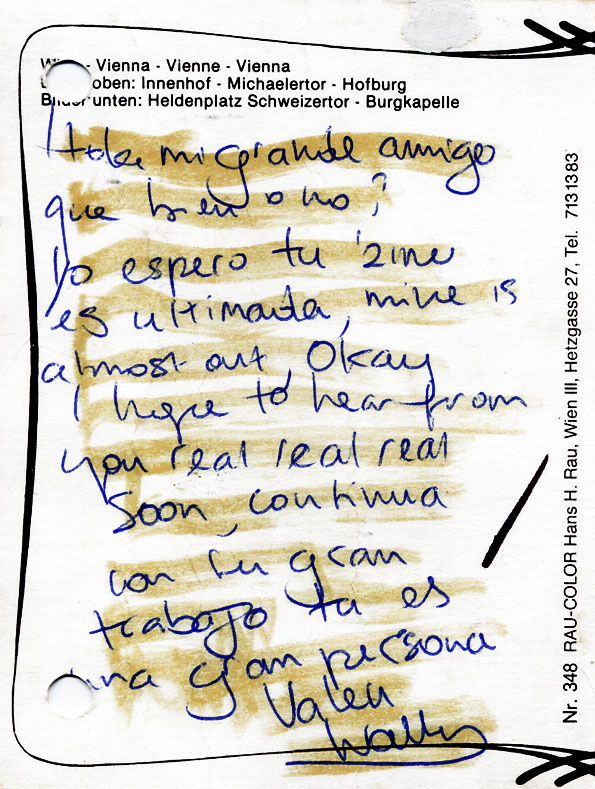 Wien - Vienna - Vienne - Vienna
oben: Innenhof - Michaelertor - Hofburg
Bilder unten: Heldenplatz Schweizertor - Burgkapelle
Hola mi grande amigo
que bien o no?
Yo espero tu 'zine
es ultimada, mine is
almost out, Okay
I hope to hear from
you real real real
soon, continua
con tu gran
trabajo tu es
una gran persona
Valen
Wally
Nr. 348 RAU-COLOR Hans H. Rau, Wien III, Hetzgasse 27, Tel. 7131383